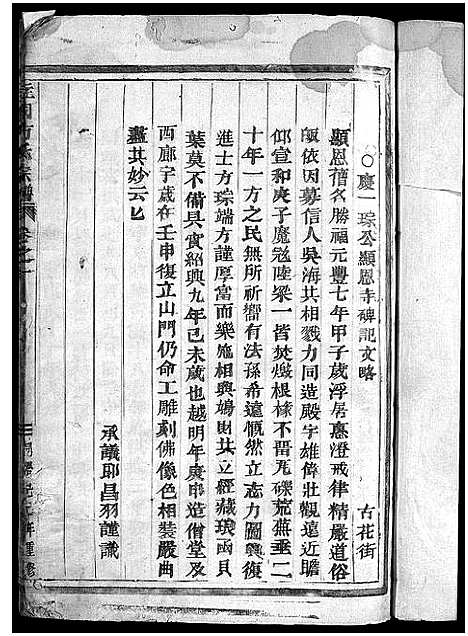 ○慶一琮公顯恩寺碑記文略
古花街
顯恩舊名勝福元豐七年甲子歲浮居惠澄戒律精嚴道俗
皈依因募信人吳海共相戮力同造殿宇雄偉壯觀遠近瞻
仰宣和庚子魔寇陸梁一皆焚燬根椽不畱瓦礫荒蕪垂二
十年一方之民無所祈嚮有法孫希遠慨然立志力圖興復
進士方琮端方謹厚富而樂施相與鳩財共立經藏琅函貝
葉莫不備具實紹興九年己未歲也越明年庚申造僧堂及
西廊宇歲在壬申復立山門仍命工雕刻佛像色相裝嚴曲
盡其妙云已
承議郎昌羽謹識